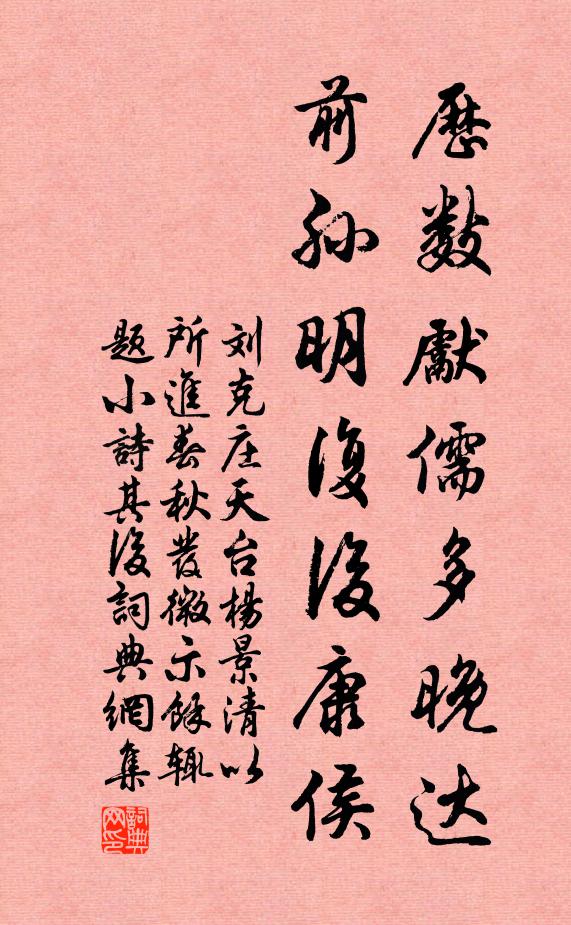 歷數獻儒多晚达
前孙明復後康侯
刘克庄天台楊景清以
所進春秋發微示餘輒
題小詩其後詞典網集
詞典网印